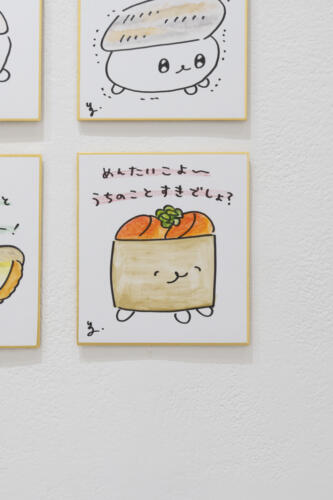 めんたいこよ〜
うちのことすきでしょ?
と
!